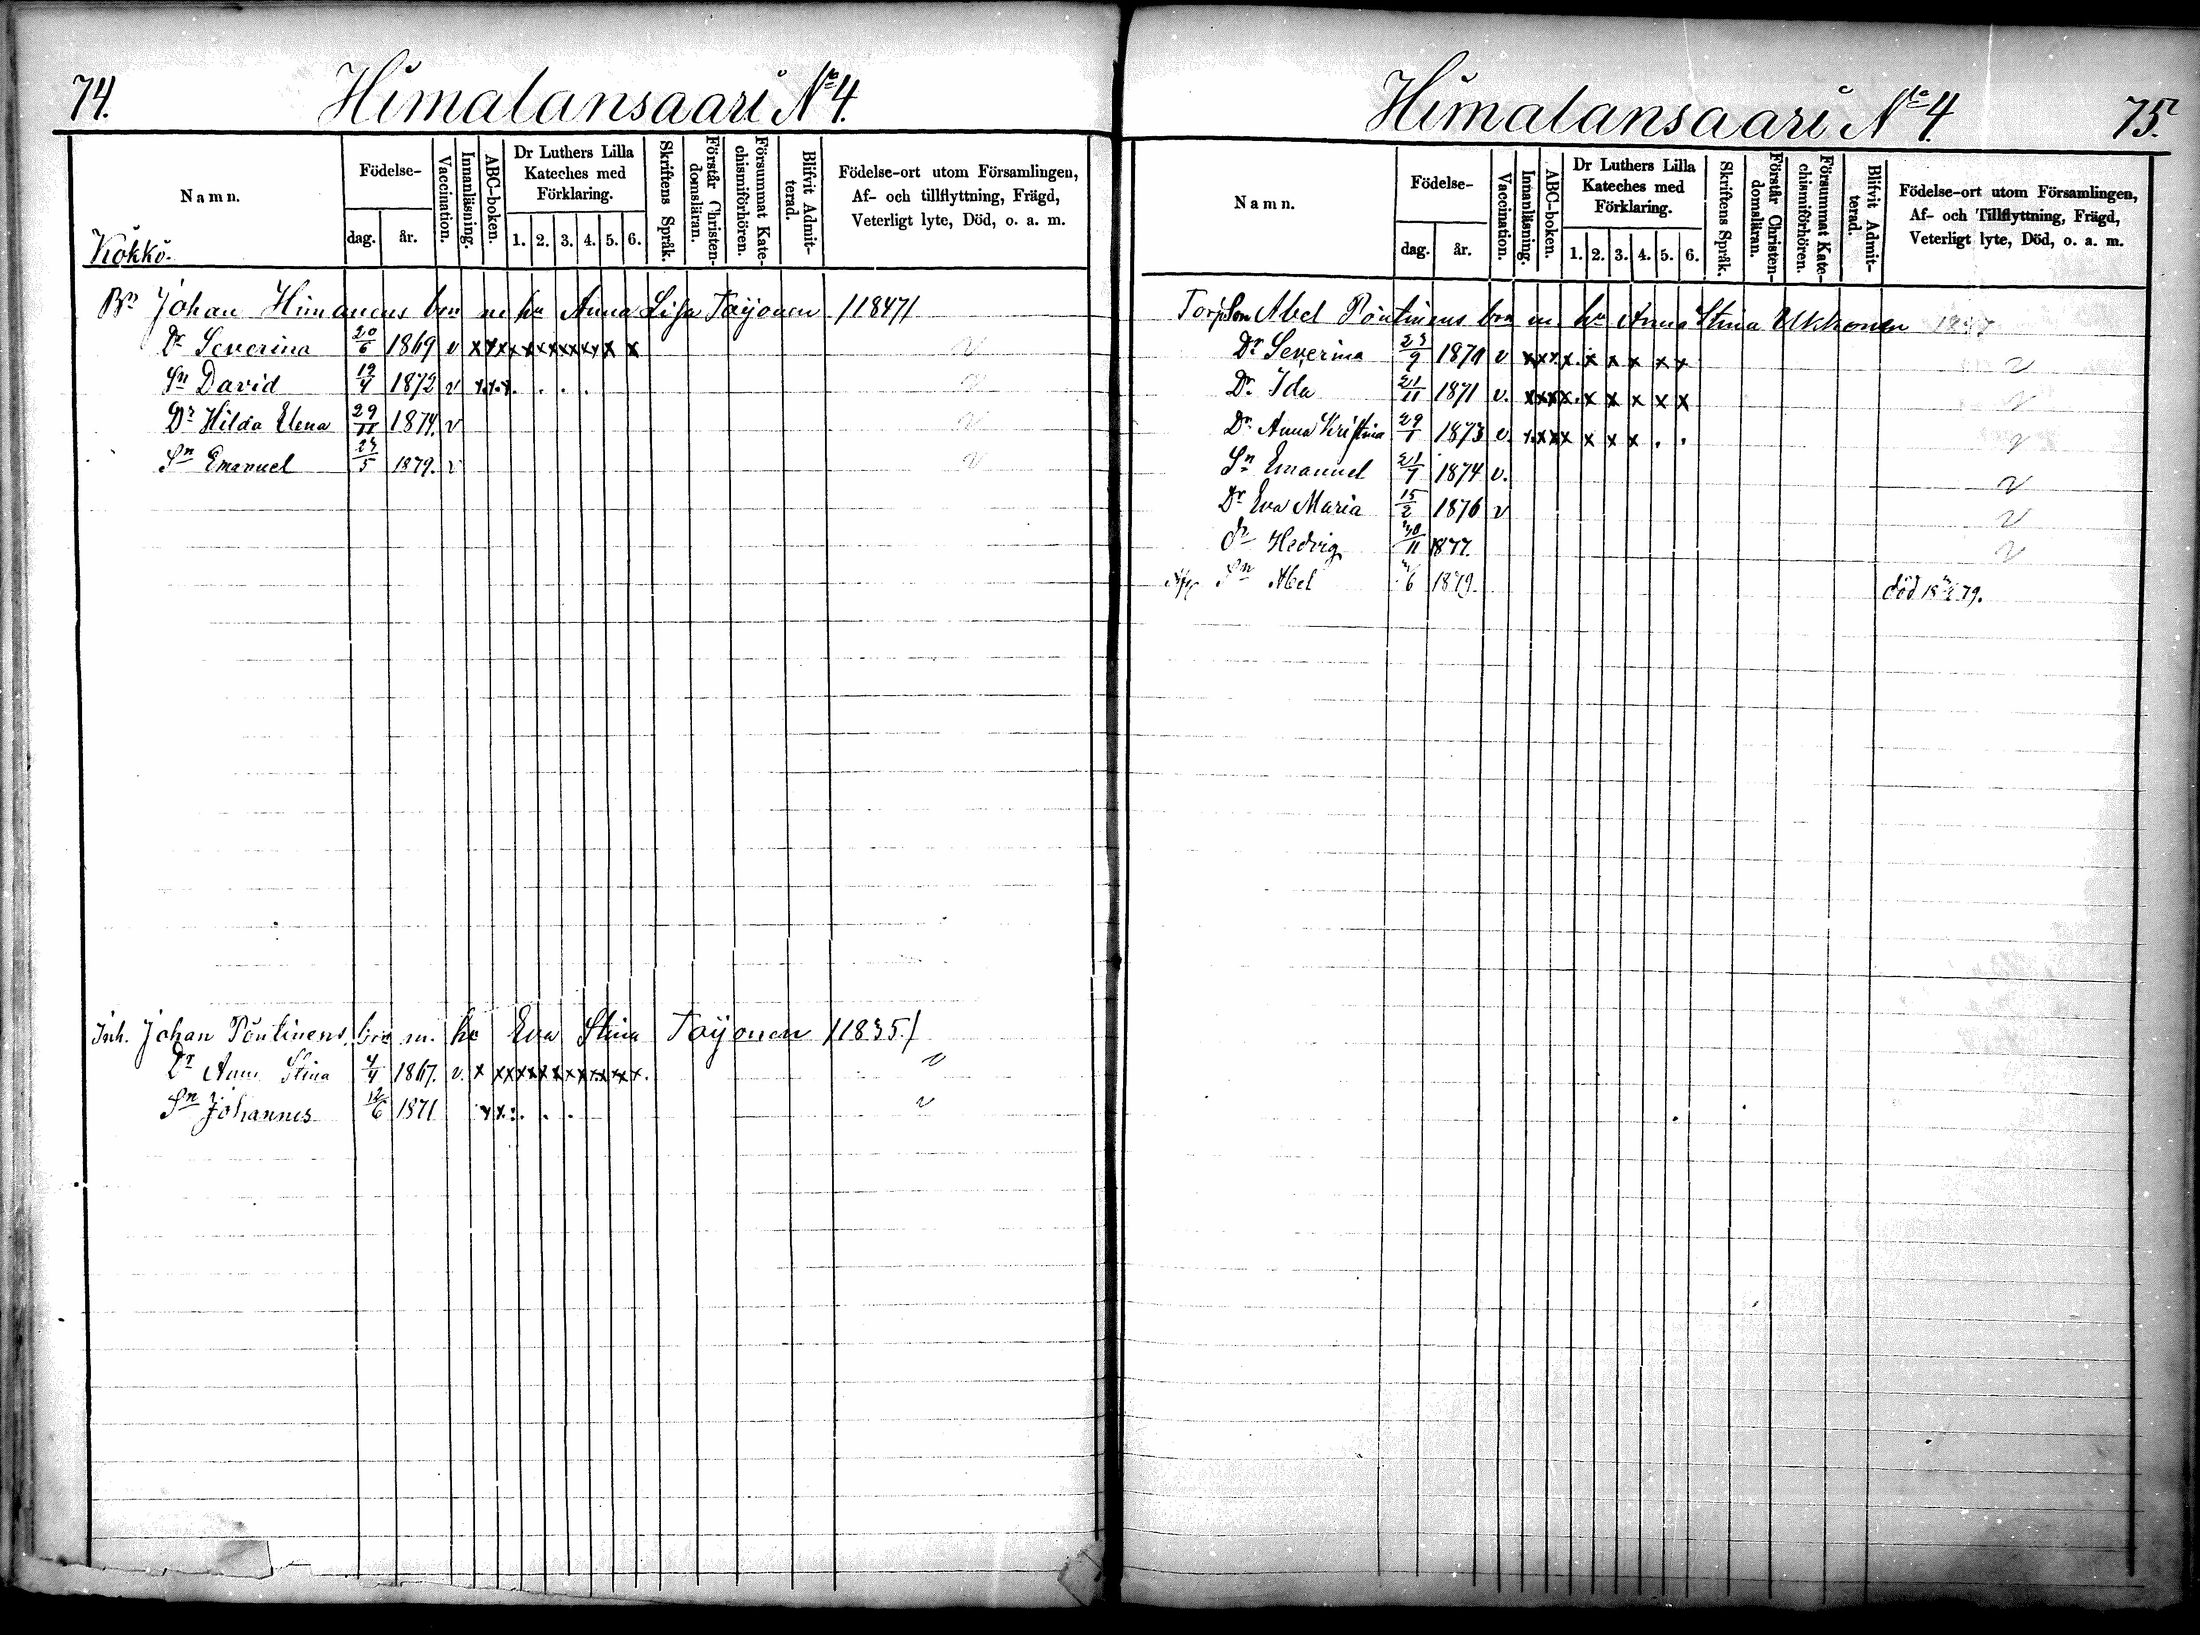 74.
Himalansaari No 4.
Namn.
Födelse-
dag.
år.
Vaccination.
Innanläsning.
ABC-boken.
Dr Luthers Lilla Kateches med Förklaring.
1. 2. 3. 4. 5. 6.
Skriftens Språk.
Förstår Christen-domsläran.
Försummat Kate-chismiförhören.
Blifvit Admit-terad.
Födelse-ort utom Församlingen,
Af- och tillflyttning, Frägd,
Veterligt lyte, Död, o. a. m.
Kokko.
Bn Johan Himanens brn m hu Anna Lisa Toijonen /1847/
Dr Severina 20/6 1869 v x x x x x x x x x x x v
Sn David 12/4 1872 v x x x . . . . v
Dr Hilda Elena 29/11 1874. v v
Sn Emanuel 23/5 1879. v v
Inh. Johan Pöntinens brn m. hu Eva Stina Toijonen /1835./
Dr Anna Stina 4/4 1867. v. x x x x x x x x x x x x. v
Sn Johannes 12/6 1871 x x . . . . v
Himalansaari No 4.
75.
Namn.
Födelse-
dag.
år.
Vaccination.
Innanläsning.
ABC-boken.
Dr Luthers Lilla Kateches med Förklaring.
1. 2. 3. 4. 5. 6.
Skriftens Språk.
Förstår Christen-domsläran.
Försummat Kate-chismiförhören.
Blifvit Admit-terad.
Födelse-ort utom Församlingen,
Af- och Tillflyttning, Frägd,
Veterligt lyte, Död, o. a. m.
Abel Pöntinens brn m. hu Anna Stina Ukkonen 1847
Dr Severina 23/9 1870 v x x x x. x x x x x v
Dr. Ida 21/11 1871 v. x x x x. x x x x x v
Dr. Anna Kristina 29/1 1873 v. x x x x x x x . . v
Sn Emanuel 21/7 1874 v. v
Dr Eva Maria 15/2 1876 v v
Dr Hedvig 30/11 1877. v
Sn Abel /6 1879. död 18 79.